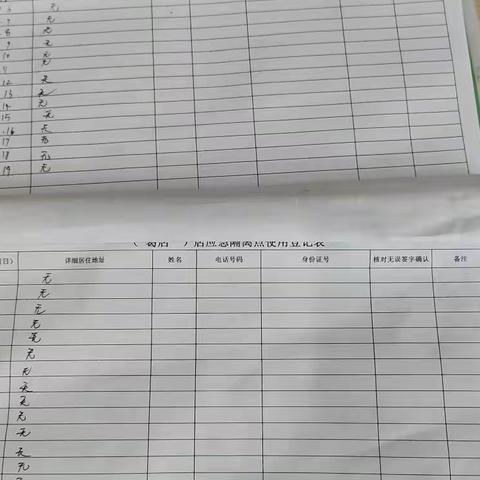 6 无
7 无
8 无
9 无
10 无
11 无
12 无
13 无
14 无
15 无
16 无
17 无
18 无
19 无
店应急隔离点使用登记表
日） 详细居住地址 姓名 电话号码 身份证号 核对无误签字确认 备注
无
无
无
无
无
无
无
无
无
无
无
无
无